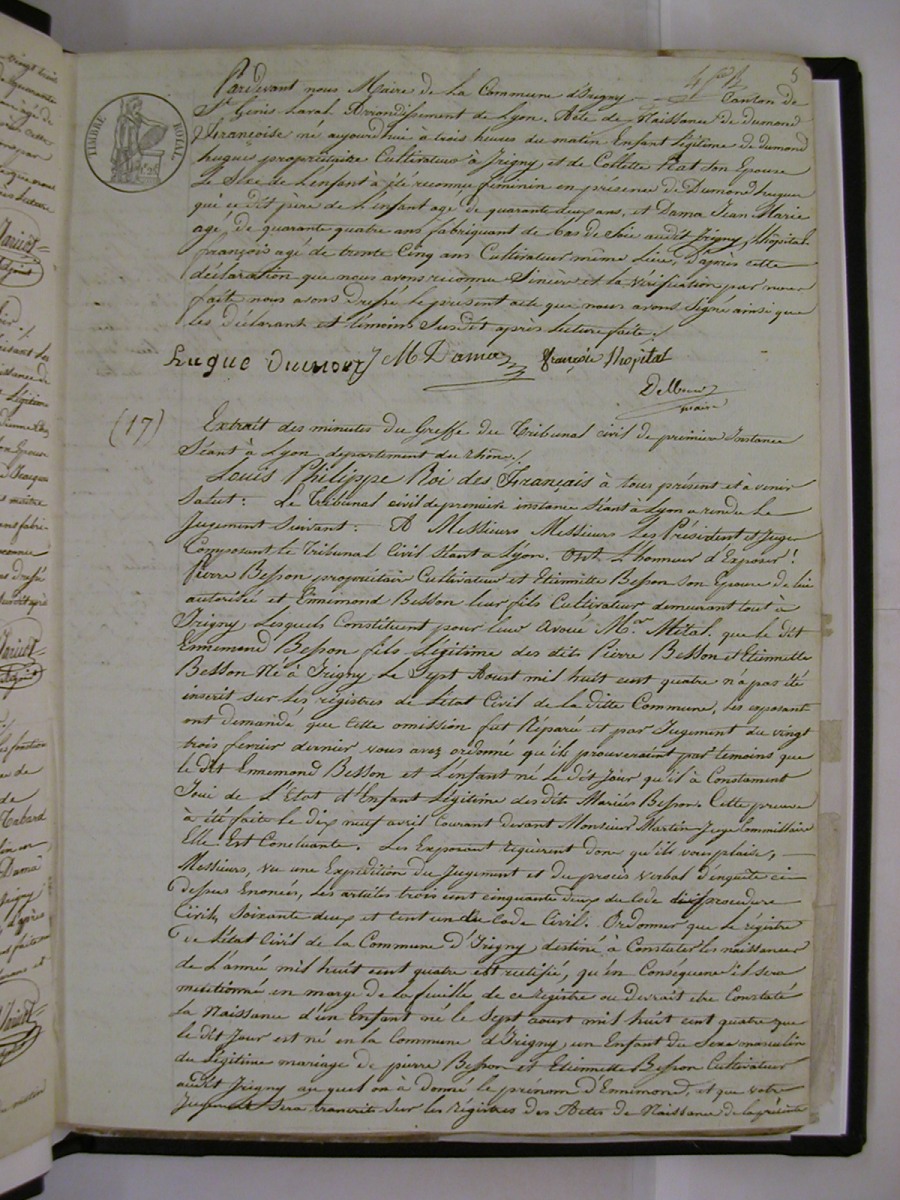 5
TIMBRE ROYAL
Pardevant nous Maire de La Commune d'Irigny Canton de
St Genis Laval Arrondissement de Lyon. Acte de Naissance de dumond
françoise né aujourd'hui à trois heures du matin Enfant Légitime de dumond
hugues propriétaire Cultivateur à Irigny et de Collette Rat son Epouse
Le Sexe de L'enfant à été reconnu féminin en présence de Dumond hugue
qui ce dit père de L'enfant agé de quarante deux ans, et Dama Jean Marie
agé de quarante quatre ans fabriquant de bas de Soie audit Irigny, Lhopital
françois agé de trente Cinq ans Cultivateur même Lieu, D'après cette
déclaration que nous avons reconnue Sincère et la vérification par nous
faite nous avons Dressé le présent acte que nous avons Signé ainsi que
les déclarant et témoins Susdit après Lecture faite ./.
hugue Dumond J M Dama françois lhopital
maire
(17)
Extrait des minutes du Greffe du Tribunal civil de première Instance
Séant à Lyon departement du rhône ./.
Louis Philippe Roi des Français à tous présent et à venir
Salut : Le Tribunal civil de première instance Séant à Lyon a rendu Le
Jugement Suivant : A Messieurs Messieurs Les Président et Juges
Composant le Tribunal Civil Séant a Lyon. Ont L'honneur d'Exposer !
Pierre Besson propriétair Cultivateur et Etiennette Besson Son Epouse de lui
autorisée et Ennemond Besson leur fils Cultivateur demeurant tout à
Irigny, Lesquels Constituent pour leur Avoué Me Mital. que le dit
Ennemond Besson fils Légitime des dits Pierre Besson et Etiennette
Besson Né à Irigny, Le Sept Aout mil huit cent quatre n'a pas été
inscrit sur les régistres de L'état Civil de la ditte Commune, Les exposant
ont demandé que Cette omission fut Réparée et par Jugement du vingt
trois fevrier dernier vous avez ordonné qu'ils prouveraient par temoins que
le dit Ennemond Besson et L'enfant né Le dit Jour qu'il à Constament
Joui de L'Etat d'Enfant Légitime des dits Mariés Besson. Cette preuve
à été faite le dix neuf avril Courant devant Monsieur Martin Juge Commissaire
Elle Est Concluante. Les Exposant requièrent donc qu'ils vous plaise,
Messieurs, vu une Expédition du Jugement et du procès verbal d'enquête ci
dessus Enoncés, Les articles trois cent cinquante deux du Code procedure
Civil, Soixante deux et cent un du Code Civil. Ordonner que Le régistre
de L'état Civil de la Commune d'Irigny destiné à Constater les naissances
de L'année mil huit cent quatre est rectifié, qu'en Conséquence il sera
mentionné en marge de la feuille de ce registre ou devrait etre Constaté
la Naissance d'un Enfant né le Sept aout mil huit cent quatre que
le dit Jour est né en la Commune d'Irigny, un Enfant du Sexe masculin
du Légitime mariage de pierre Besson et Etiennette Besson Cultivateur
audit Irigny au quel on à donné le prénom d'Ennemond, et que votre
Jugement Sera transcrits Sur les Régistres des Actes de Naissance de la présente